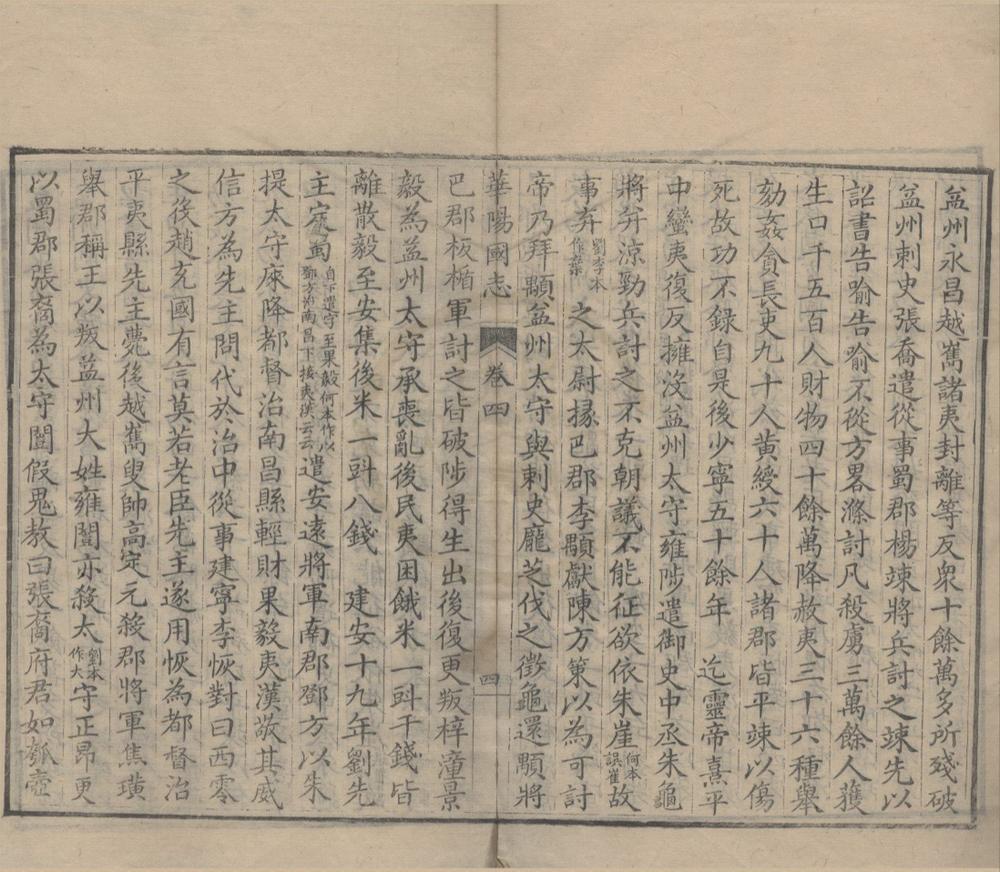 益州永昌越嶲諸夷封離等反衆十餘萬多所殘破
益州刺史張喬遣從事蜀郡楊竦將兵討之竦先以
詔書告喻告喻不從方畧滌討凡殺虜三萬餘人獲
生口千五百人財物四十餘萬降赦夷三十六種舉
劾姦貪長吏九十人黃綬六十人諸郡皆平竦以傷
死故功不錄自是後少寧五十餘年　迄靈帝熹平
中蠻夷復反擁没益州太守雍陟遣御史中丞朱龜
將并涼勁兵討之不克朝議不能征欲依朱崖何本誤雀故
事弃劉李本作棄之太尉掾巴郡李顒獻陳方策以為可討
帝乃拜顒益州太守與刺史龐芝伐之徵龜還顒將
華陽國志　卷四　四
巴郡板楯軍討之皆破陟得生出後復更叛梓潼景
毅為益州太守承喪亂後民夷困餓米一㪷千錢皆
離散毅至安集後米一㪷八錢　建安十九年劉先
主定蜀自下遣字至果毅何本作以鄧方治南昌下接夷漢云云遣安遠將軍南郡鄧方以朱
提太守庲降都督治南昌縣輕財果毅夷漢敬其威
信方為先主問代於治中從事建寧李恢對曰西零
之役趙充國有言莫若老臣先主遂用恢為都督治
平夷縣先主薨後越嶲叟帥高定元殺郡將軍焦璜
舉郡稱王以叛益州大姓雍闓亦殺太劉本作大守正昂更
以蜀郡張裔為太守闓假鬼教曰張裔府君如瓠壺